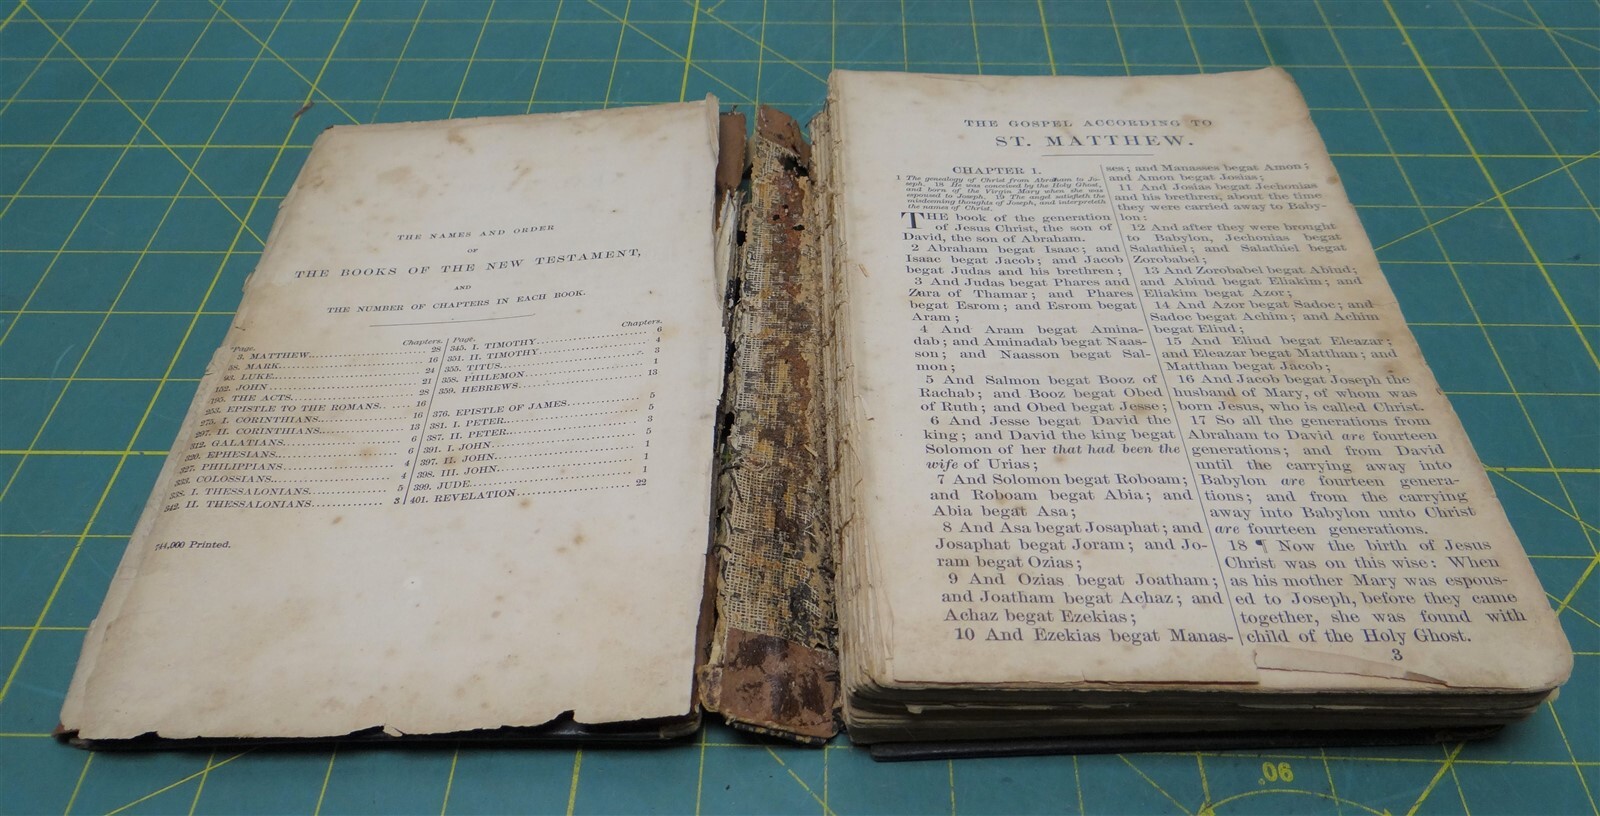 THE NAMES AND ORDER
OF
THE BOOKS OF THE NEW TESTAMENT,
AND
THE NUMBER OF CHAPTERS IN EACH BOOK.
Page. Chapters.
3. MATTHEW 28
58. MARK 16
93. LUKE 24
152. JOHN 21
THE ACTS 28
253. EPISTLE TO THE ROMANS 16
275. I. CORINTHIANS 16
297. II. CORINTHIANS 13
312. GALATIANS 6
320. EPHESIANS 6
327. PHILIPPIANS 4
333. COLOSSIANS 4
338. I. THESSALONIANS 5
342. II. THESSALONIANS 3
Page. Chapters.
345. I. TIMOTHY 6
351. II. TIMOTHY 4
355. TITUS 3
358. PHILEMON 1
359. HEBREWS 13
376. EPISTLE OF JAMES 5
381. I. PETER 5
387. II. PETER 3
391. I. JOHN 5
397. II. JOHN 1
398. III. JOHN 1
399. JUDE 1
401. REVELATION 22
744,000 Printed.
THE GOSPEL ACCORDING TO
ST. MATTHEW.
CHAPTER I.
1 The genealogy of Christ from Abraham to Jo-
seph. 18 He was conceived by the Holy Ghost,
and born of the Virgin Mary when she was
espoused to Joseph. 19 The angel satisfieth the
misdeeming thoughts of Joseph, and interpreteth
the names of Christ.
THE book of the generation
of Jesus Christ, the son of
David, the son of Abraham.
2 Abraham begat Isaac; and
Isaac begat Jacob; and Jacob
begat Judas and his brethren;
3 And Judas begat Phares and
Zara of Thamar; and Phares
begat Esrom; and Esrom begat
Aram;
4 And Aram begat Amina-
dab; and Aminadab begat Naas-
son; and Naasson begat Sal-
mon;
5 And Salmon begat Booz of
Rachab; and Booz begat Obed
of Ruth; and Obed begat Jesse;
6 And Jesse begat David the
king; and David the king begat
Solomon of her that had been the
wife of Urias;
7 And Solomon begat Roboam;
and Roboam begat Abia; and
Abia begat Asa;
8 And Asa begat Josaphat; and
Josaphat begat Joram; and Jo-
ram begat Ozias;
9 And Ozias begat Joatham;
and Joatham begat Achaz; and
Achaz begat Ezekias;
10 And Ezekias begat Manas-
ses; and Manasses begat Amon;
and Amon begat Josias;
11 And Josias begat Jechonias
and his brethren, about the time
they were carried away to Baby-
lon:
12 And after they were brought
to Babylon, Jechonias begat
Salathiel; and Salathiel begat
Zorobabel;
13 And Zorobabel begat Abiud;
and Abiud begat Eliakim; and
Eliakim begat Azor;
14 And Azor begat Sadoc; and
Sadoc begat Achim; and Achim
begat Eliud;
15 And Eliud begat Eleazar;
and Eleazar begat Matthan; and
Matthan begat Jacob;
16 And Jacob begat Joseph the
husband of Mary, of whom was
born Jesus, who is called Christ.
17 So all the generations from
Abraham to David are fourteen
generations; and from David
until the carrying away into
Babylon are fourteen genera-
tions; and from the carrying
away into Babylon unto Christ
are fourteen generations.
18 ¶ Now the birth of Jesus
Christ was on this wise: When
as his mother Mary was espous-
ed to Joseph, before they came
together, she was found with
child of the Holy Ghost.
3